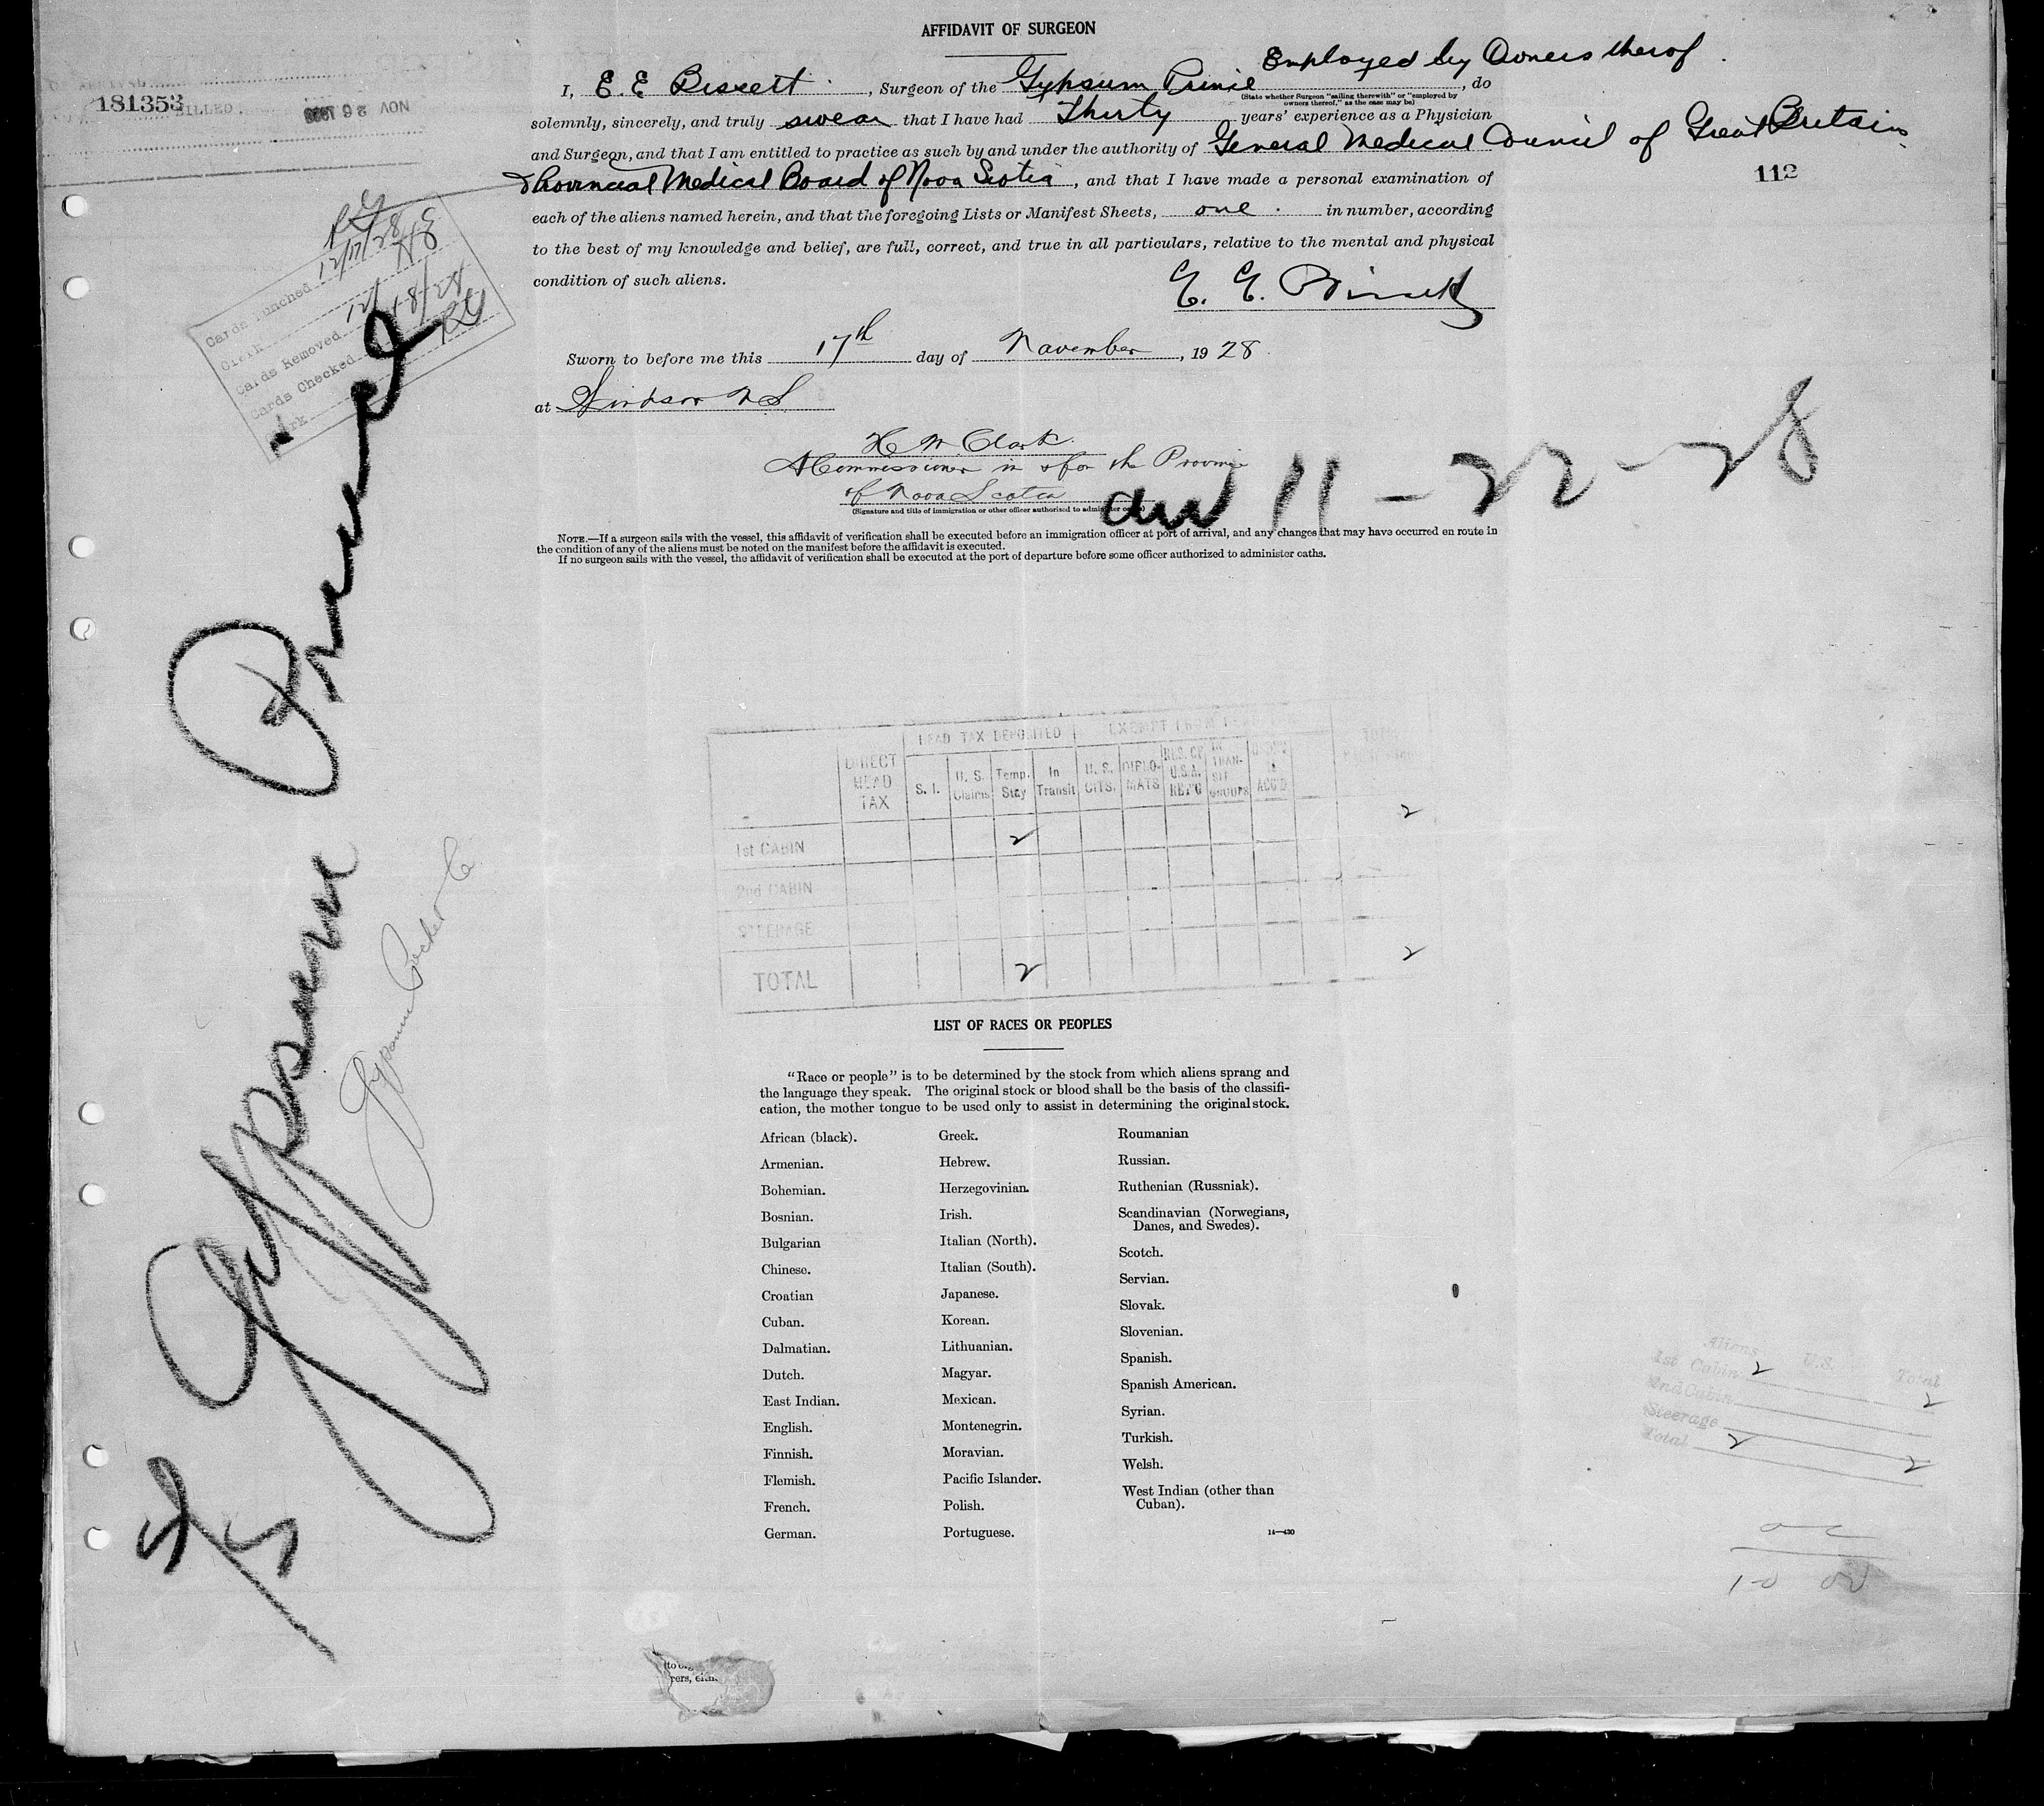 AFFIDAVIT OF SURGEON
Employed by Owners therof
I, E. E Bissett, Surgeon of the Gypsum Prince, do
(State whether Surgeon "sailing therewith" or "employed by
owners thereof," as the case may be)
solemnly, sincerely, and truly swear that I have had Thirty years' experience as a Physician
and Surgeon, and that I am entitled to practice as such by and under the authority of General Medical Council of Great Britain
& Provincial Medical Board of Nova Scotia, and that I have made a personal examination of
each of the aliens named herein, and that the foregoing Lists or Manifest Sheets, one in number, according
to the best of my knowledge and belief, are full, correct, and true in all particulars, relative to the mental and physical
condition of such aliens.
E. E. Bissett
Sworn to before me this 17th day of November, 1928
at Windsor N S
H W Clark
A Commissioner in & for the Province
of Nova Scotia
(Signature and title of immigration or other officer authorized to administer
11-22-28
NOTE.—If a surgeon sails with the vessel, this affidavit of verification shall be executed before an immigration officer at port of arrival, and any changes that may have occurred en route in
the condition of any of the aliens must be noted on the manifest before the affidavit is executed.
If no surgeon sails with the vessel, the affidavit of verification shall be executed at the port of departure before some officer authorized to administer oaths.
181353
BILLED
NOV 26 1928
112
Cards Punched 12/17/28
Clerk
Cards Removed
Cards Checked
Gypsum Prince
Gypsum Packet Co
HEAD TAX DEPOSITED
EXEMPT FROM HEAD
DIRECT HEAD TAX
S. I.
U. S. Claims
Temp. Stay
In Transit
U. S. CITS.
DIPLO-MATS
RES. OF U.S.A. RET'G
IN TRAN-SIT GROUPS
ACC'D
TOTAL
2
1st CABIN 2
2nd CABIN
STEERAGE
2
TOTAL 2
LIST OF RACES OR PEOPLES
"Race or people" is to be determined by the stock from which aliens sprang and
the language they speak. The original stock or blood shall be the basis of the classifi-
cation, the mother tongue to be used only to assist in determining the original stock.
African (black).
Armenian.
Bohemian.
Bosnian.
Bulgarian
Chinese.
Croatian
Cuban.
Dalmatian.
Dutch.
East Indian.
English.
Finnish.
Flemish.
French.
German.
Greek.
Hebrew.
Herzegovinian.
Irish.
Italian (North).
Italian (South).
Japanese.
Korean.
Lithuanian.
Magyar.
Mexican.
Montenegrin.
Moravian.
Pacific Islander.
Polish.
Portuguese.
Roumanian
Russian.
Ruthenian (Russniak).
Scandinavian (Norwegians,
Danes, and Swedes).
Scotch.
Servian.
Slovak.
Slovenian.
Spanish.
Spanish American.
Syrian.
Turkish.
Welsh.
West Indian (other than
Cuban).
14—430
Aliens U.S. Total
1st Cabin 2 2
2nd Cabin
Steerage
Total 2 2